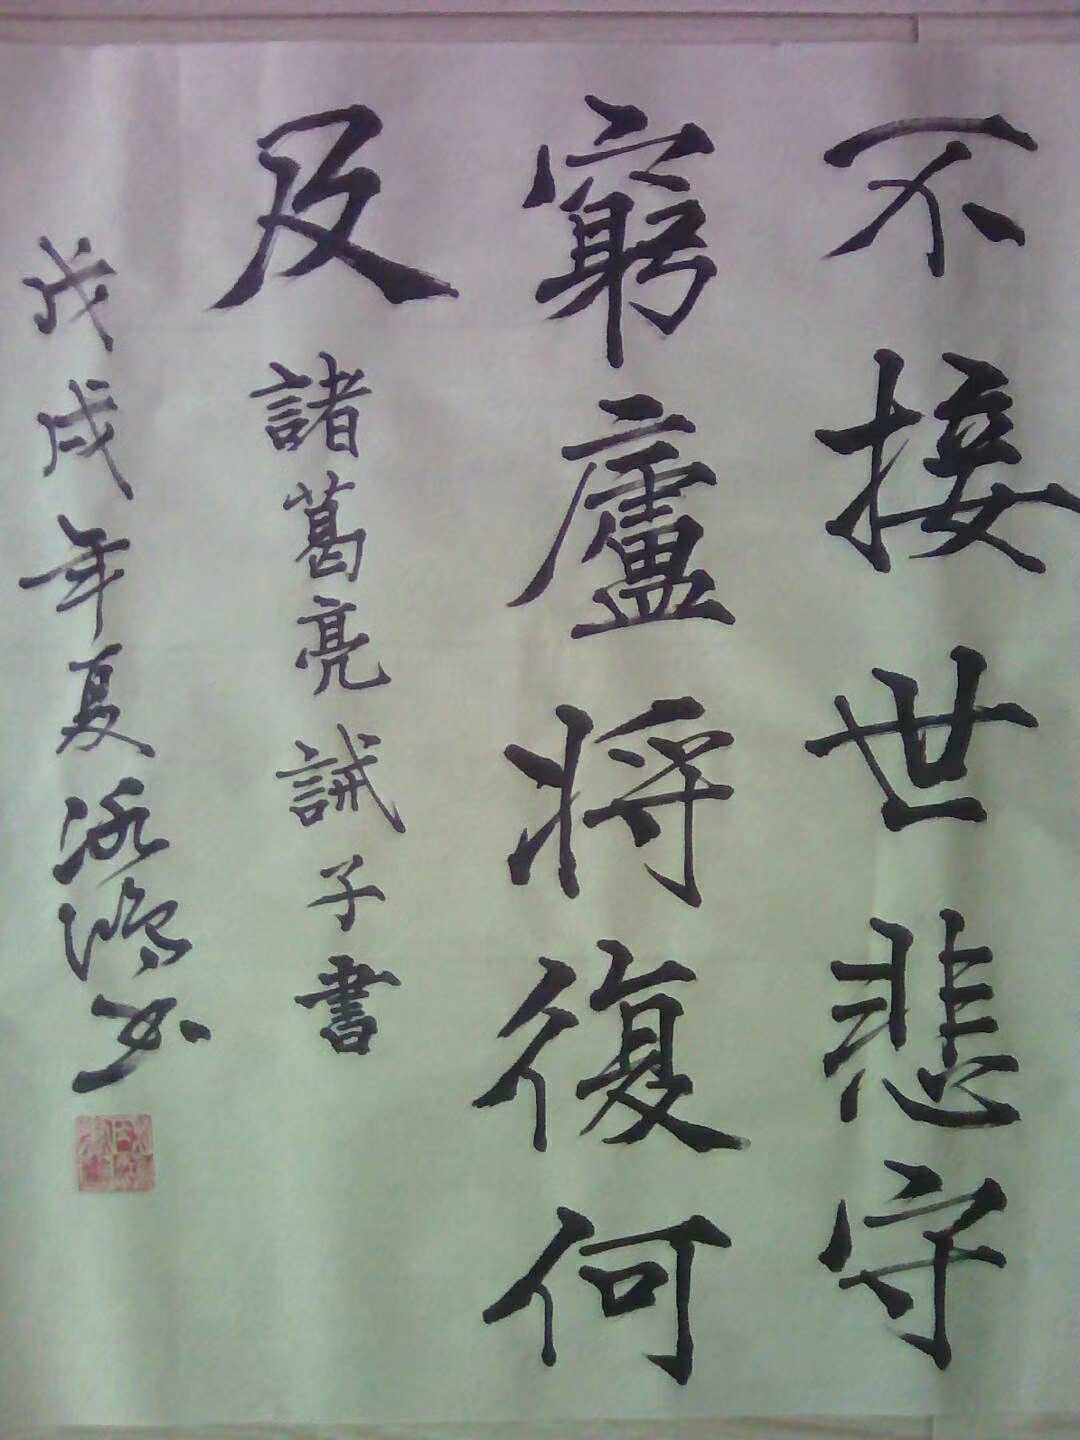 不接世悲守
窮廬將復何
及
諸葛亮誡子書
戊戌年夏泳鴻书